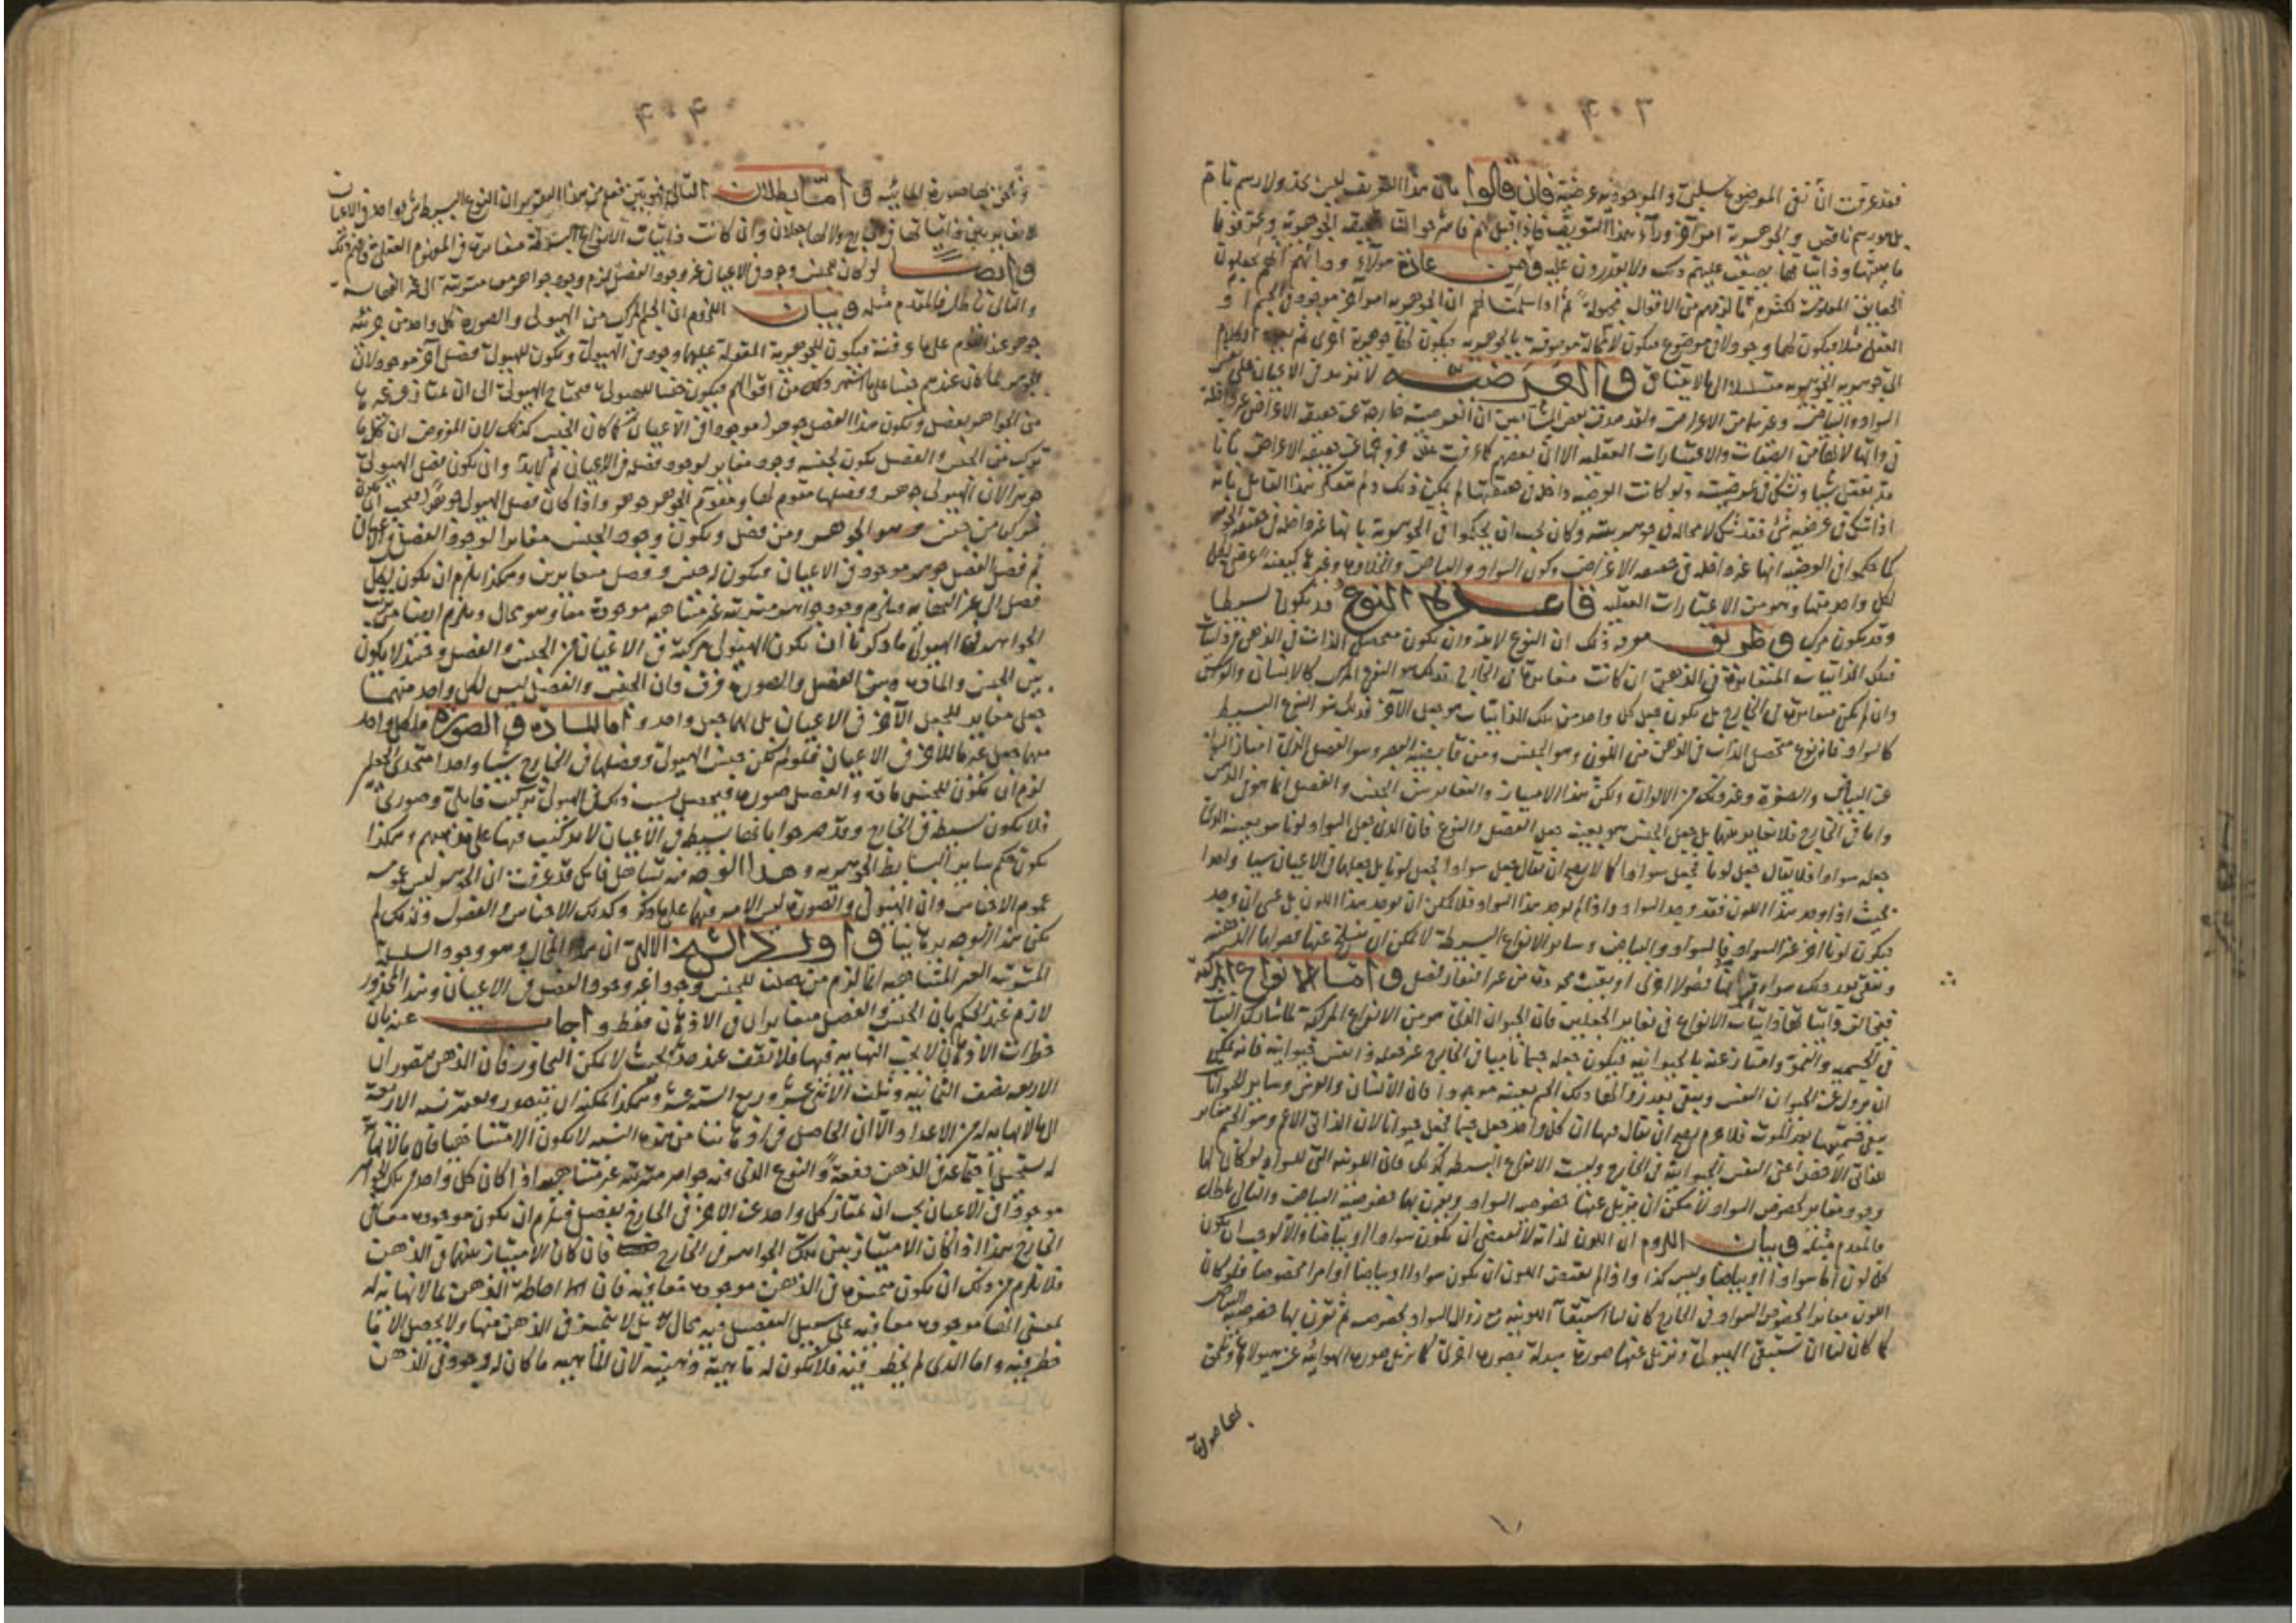 ٤٠٣
فقد عرفت ان نفى الموضوع سلبى والموجودية عرضية فان قالوا بان هذا التعريف ليس بحد ولا رسم تام
بل هو رسم ناقص والجوهرية امر آخر وراء هذا التعريف فاذا قيل لهم فاشرحوا لنا حقيقة الجوهرية وعرفونا
ماهيتها وذاتياتها يصعب عليهم ذلك ولا يقدرون عليه ومن عادة هؤلاء
ان الجوهرية امر آخر موجود فى الجسم او
العقل مثلا فيكون لها وجود لا فى موضوع فيكون لا محالة موصوفة بالجوهرية فيكون لها جوهرية اخرى ثم يعود الكلام
الى جوهرية الجوهرية الى ما لا يتناهى والعرضية لا تزيد فى الاعيان على
السواد والبياض وغيرهما من الاعراض ان العرضية خارجة عن حقيقة الاعراض غير داخلة
فى ذاتها لانها من الصفات والاعتبارات العقلية الا ان بعضهم عن حقيقة الاعراض بانا
قد نعقل شيئا ونشك فى عرضيته ولو كانت العرضية داخلة فى حقيقتها لم يكن ذلك ولم يتفكر هذا القايل بانه
اذا شك فى عرضية شئ فقد شك لا محالة فى جوهريته وكان يجب ان يحكموا فى الجوهرية بانها غير داخلة فى حقيقة الجوهر
كما حكموا فى العرضية انها غير داخلة فى حقيقة الاعراض وكون السواد والبياض وغيرها كيفية عرضى
لكل واحد منها وهو من الاعتبارات العقلية قاعدة النوع قد يكون بسيطا
وقد يكون مركبا وطريق معرفة ذلك ان النوع لابد وان يكون متحصل الذات فى الذهن من ذاتيات
فتلك الذاتيات المتغايرة فى الذهن ان كانت متغايرة فى الخارج فذلك هو النوع المركب كالانسان والفرس
وان لم يكن متغايرة فى الخارج بل يكون جعل كل واحد من تلك الذاتيات هو جعل الآخر فذلك هو النوع البسيط
كالسواد فانه نوع متحصل الذات فى الذهن من اللون وهو الجنس ومن قابضية البصر وهو الفصل الذى امتاز به
عن البياض والصفرة وغير ذلك من الالوان ولكن هذا الامتياز والتغاير بين الجنس والفصل انما هو فى الذهن
واما فى الخارج فلا تغاير بينهما بل جعل الجنس هو بعينه جعل الفصل والنوع فان الذى جعل السواد لونا هو بعينه الذى
جعله سوادا فلا يقال جعل لونا فجعل سوادا كما لا يصح ان يقال جعل سوادا فجعل لونا بل جعلهما فى الاعيان شيئا واحدا
بحيث اذا وجد هذا اللون فقد وجد السواد واذا لم يوجد هذا السواد فلا يمكن ان يوجد هذا اللون بل عسى ان يوجد
فيكون لونا آخر غير السواد فالسواد والبياض وساير الانواع البسيطة لا يمكن ان ينسلخ عنها فصولها الذهنية
ويبقى بعد ذلك سواء فصولا اخرى او بقيت مجردة من غير فصل واما الانواع المركبة
ذاتيات الانواع فى تغاير الجعلين فان الحيوان الذى هو من الانواع المركبة لما شارك النبات
فى الجسمية والنمو وامتاز عنه بالحيوانية فيكون جعله جسما ناميا فى الخارج غير جعله ذا نفس حيوانية فانه يمكن
ان تزول عن الحيوان النفس ويبقى بعد ذلك الجسم بعينه موجودا فان الانسان والفرس وساير الحيوانات
يبقى جسميتها بعد الموت فلا جرم يصح ان يقال فيها ان كل واحد جعل جسما فجعل حيوانا لان الذاتى الاعم وهو الجسم مغاير
للذاتى الاخص اعنى النفس الحيوانية فى الخارج وليست الانواع البسيطة كذلك فان اللونية التى للسواد لو كان لها
وجود مغاير لخصوص السواد لأمكن ان يزيل عنها خصوص السواد ويقرن بها خصوصية البياض والتالى باطل
فالمقدم مثله وبيان اللزوم ان اللون لذاته لا يقتضى ان يكون سوادا او بياضا والا لوجب ان يكون
كل لون اما سوادا او بياضا وليس كذا واذا لم يقتض اللون ان يكون سوادا او بياضا او امرا مخصوصا فلو كان
اللون مغايرا لخصوص السواد فى الخارج كان لنا استبقاء اللونية مع زوال السواد لخصوصه ثم نقرن بها خصوصية البياض
كما كان لنا ان نستبقى الهيولى ونزيل عنها صورة مبدلة بصورة اخرى كما نزيل صورة الهوائية عن هيولاها ونقرن
بها صورة
٤٠٤
ونقرن بها صورة المائية واما بطلان التالى فهو بين فعلم من هذا التقرير ان النوع البسيط شئ واحد فى الاعيان
لا تغاير بين ذاتياتها فى الخارج ولا لها جعلان وان كانت ذاتيات الانواع البسيطة متغايرة فى المفهوم العقلى فافهم ذلك
وايضا لو كان للجنس وجود فى الاعيان غير وجود الفصل لزم وجود جواهر مترتبة الى غير النهاية
والتالى باطل فالمقدم مثله وبيان اللزوم ان الجسم المركب من الهيولى والصورة كل واحد من جزئيه
جوهر عند القوم على ما عرفته فيكون للجوهرية المقولة عليها وجود فى الهيولى ويكون للهيولى فصل آخر موجود لان
الجوهر لما كان عندهم جنسا على ما اشتهر ذلك من اقوالهم فيكون جنسا للهيولى فيحتاج الهيولى الى ان تمتاز عن غيرها
من الجواهر بفصل ويكون هذا الفصل جوهرا موجودا فى الاعيان كما كان الجنس كذلك لان المفروض ان كل ما
تركب من الجنس والفصل يكون لجنسه وجود مغاير لوجود فصله فى الاعيان وان يكون فصل الهيولى
جوهرا لان الهيولى جوهر وفصلها مقوم لها ومقوم الجوهر جوهر واذا كان فصل الهيولى جوهرا فيجب
تركبا من جنس وهو الجوهر ومن فصل ويكون وجود الجنس مغايرا لوجود الفصل فى الاعيان
ثم فصل الفصل جوهر موجود فى الاعيان فيكون له جنس وفصل متغايرين وهكذا يلزم ان يكون لكل
فصل الى غير النهاية ويلزم وجود جواهر مترتبة غير متناهية موجودة معا وهو محال ويلزم ايضا من
الجواهر فى الهيولى ما ذكرنا ان يكون الهيولى مركبة فى الاعيان من الجنس والفصل وحينئذ لا يكون
بين الجنس والمادة وبين الفصل والصورة فرق وان الجنس والفصل ليس لكل واحد منهما
جعل مغاير للجعل الآخر فى الاعيان بل لهما جعل واحد واما المادة والصورة فلكل واحد
منهما جعل غير ما للآخر فى الاعيان فلو لم يكن جنس الهيولى وفصلها فى الخارج شيئا واحدا متحدى الجعل
لزم ان يكون للجنس مادة والفصل صورة فيحصل بسبب ذلك فى الهيولى تركيب قابلى وصورى
فلا يكون بسيطة فى الخارج وقد صرحوا بانها بسيطة فى الاعيان لا تركيب فيها على وهكذا
يكون حكم ساير البسايط الجوهرية وهذا الوجه فيه تساهل فانك قد عرفت ان الجوهر ليس عمومه
عموم الاجناس وان الهيولى والصورة ليس الامر فيهما على ما ذكر وكذلك الاجناس والفصول ولذلك لم
يكن هذا الوجه برهانيا واورد الشيخ الالهى ان هذا المحال وهو وجود السلسلة
المترتبة الغير المتناهية انما لزم من للجنس وجودا غير وجود الفصل فى الاعيان وهذا المحذور
لازم عند الحكم بان الجنس والفصل متغايران فى الاذهان فقط واجاب عنه بان
خطرات الاذهان لا يجب النهاية فيها فلا تقف عند حد بحيث لا يمكن التجاوز فان الذهن يتصور ان
الاربعة نصف الثمانية وثلث الاثنى عشر وربع الستة عشر وهكذا يمكنه ان يتصور ويعتبر نسبة الاربعة
الى ما لا نهاية له من الاعداد الا ان الحاصل فى اذهاننا من هذه النسبة لا يكون الا متناهيا فان ما لا نهاية
له يستحيل اجتماعه فى الذهن دفعة والنوع الذى فيه جواهر مترتبة غير متناهية اذا كان كل واحد من تلك الجواهر
موجودا فى الاعيان يجب ان يمتاز كل واحد عن الآخر فى الخارج بفصل فيلزم ان يكون موجودة معا فى
الخارج هذا اذا كان الامتياز بين تلك الجواهر فى الخارج فان كان الامتياز بينهما فى الذهن
فلا يلزم من ذلك ان يكون متميزة فى الذهن موجودة معا فيه فان احاطة الذهن بما لا نهاية له
بمعنى انها موجودة معا فيه على سبيل التفصيل فيه محال بل لا تتميز فى الذهن منها ولا يحصل الا ما
خطر فيه واما الذى لم يخطر فيه فلا يكون له ماهية ذهنية لان الماهية ما كان له وجود فى الذهن